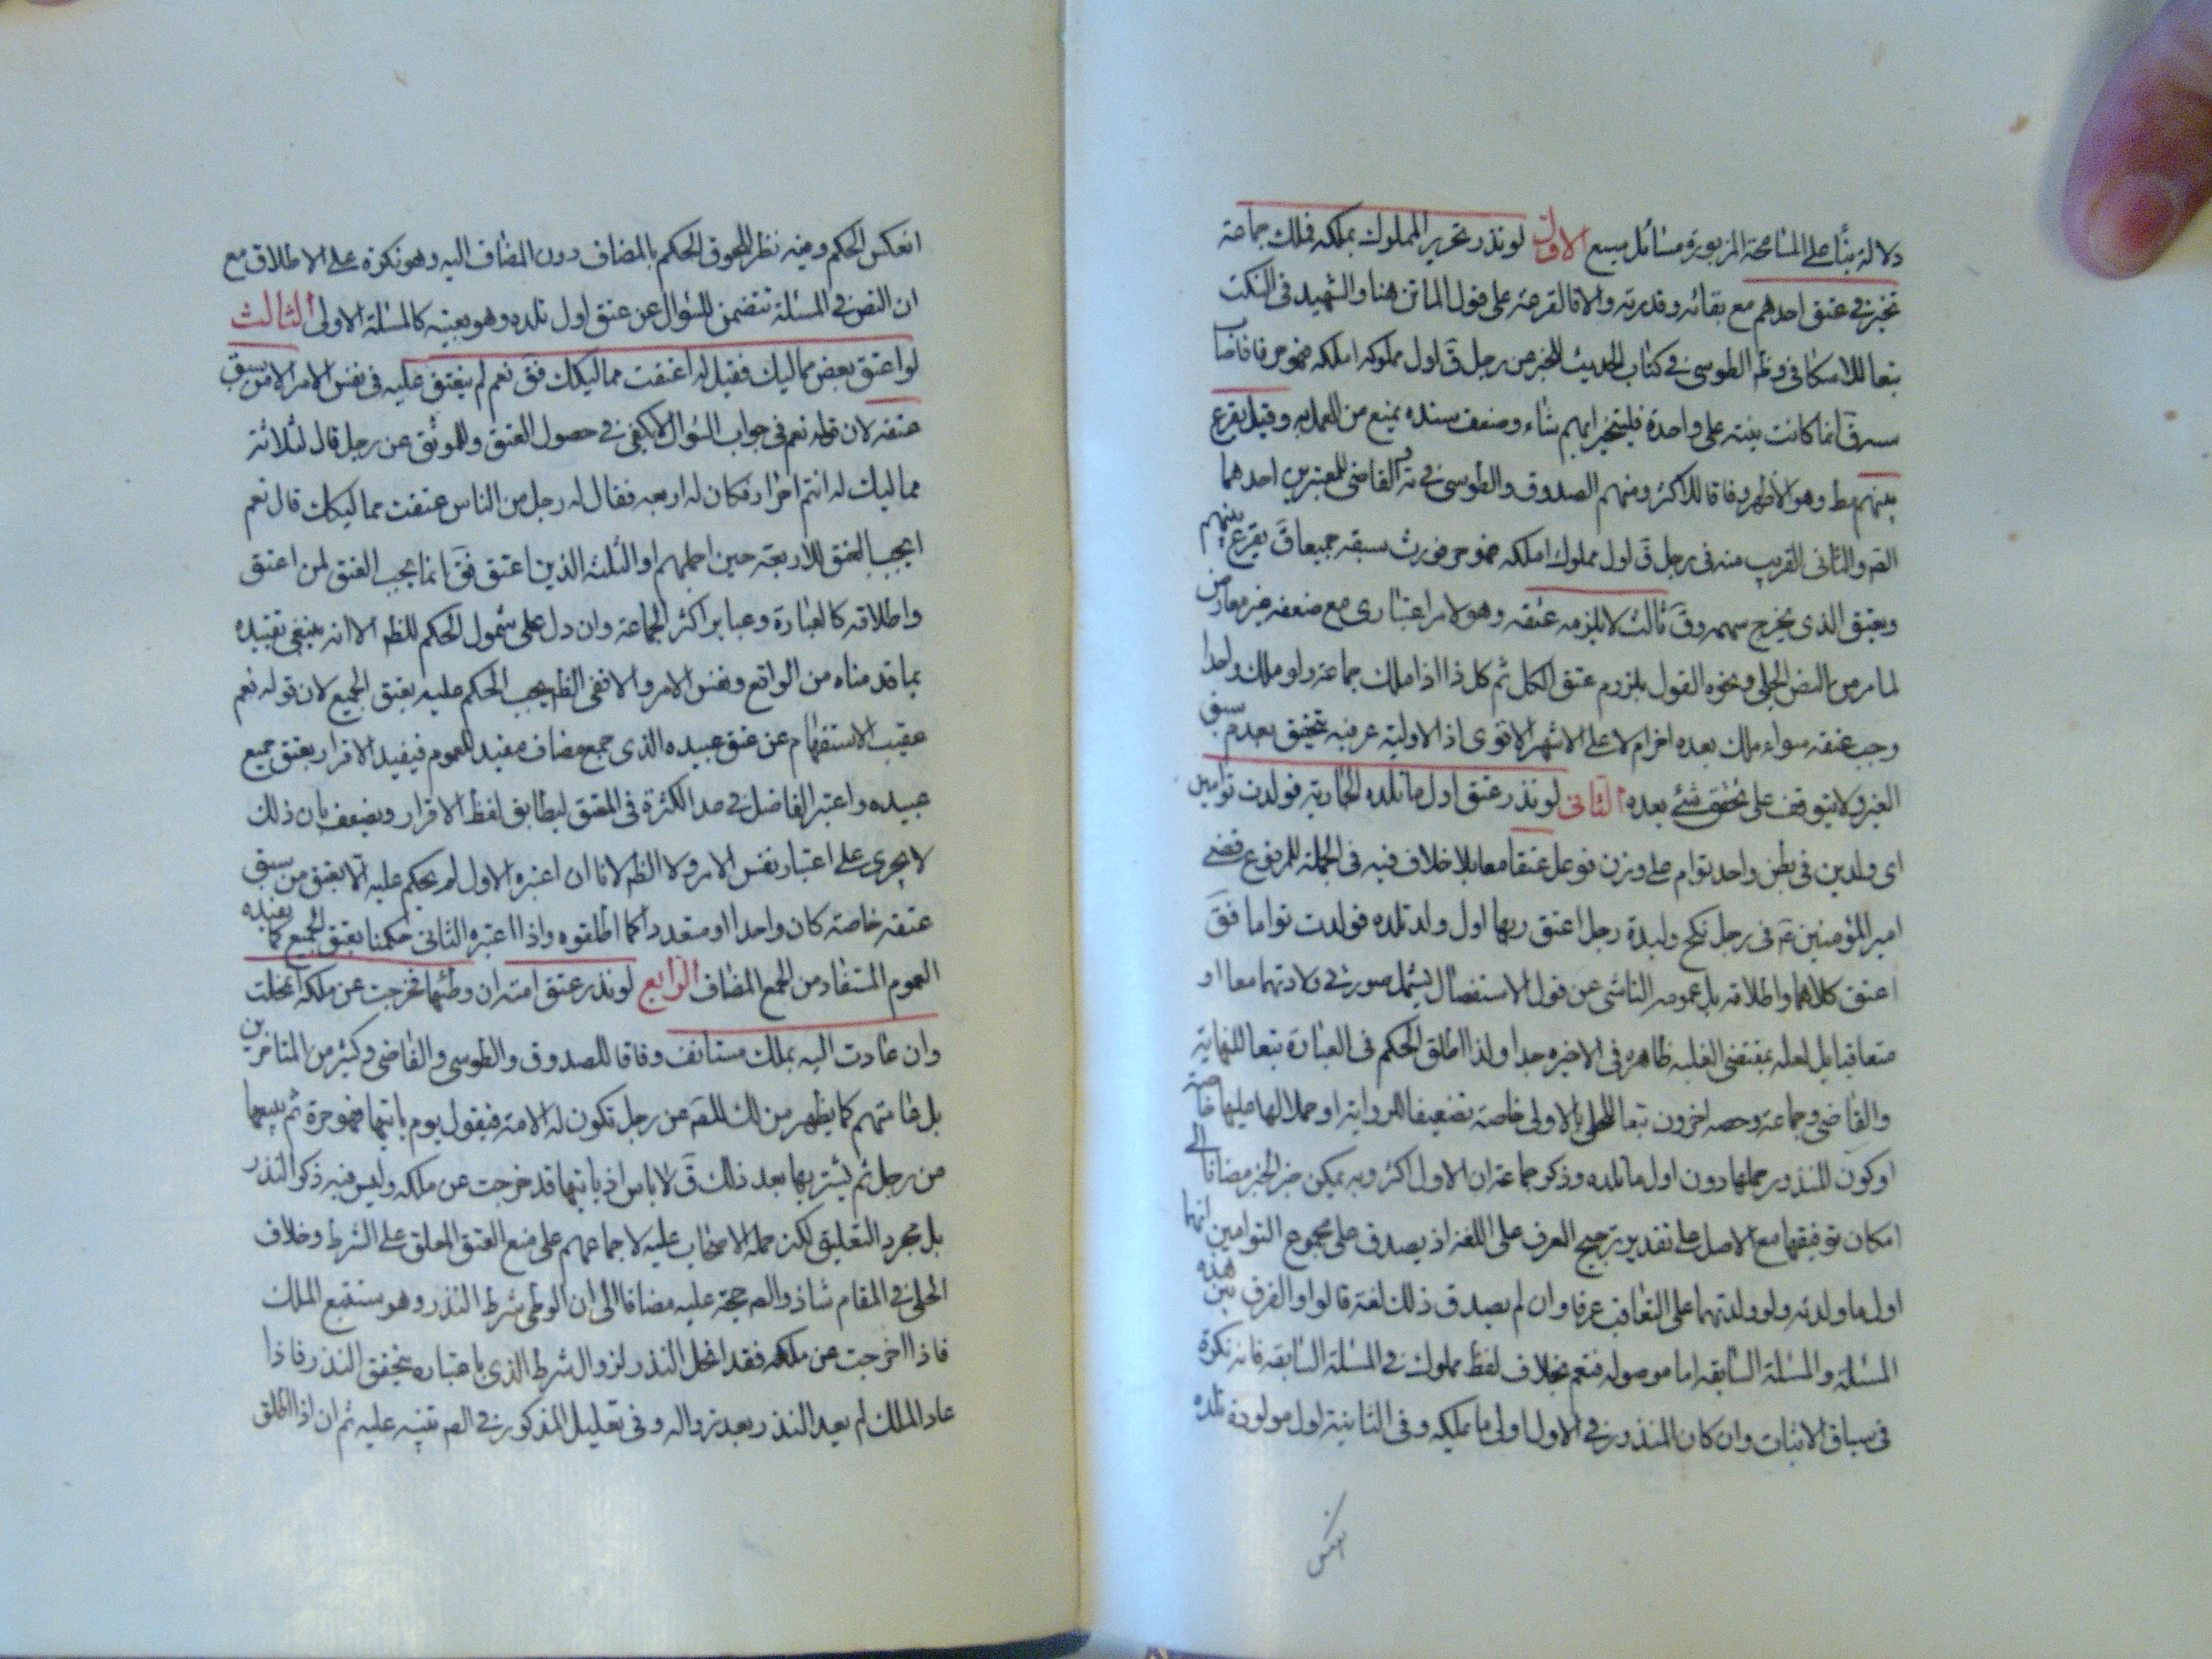 دلالة بناً على المسامحة المزبورة مسائل سبع الاولى لو نذر تحرير المملوك يملكه فملك جماعة
تخير في عتق احدهم مع بقائه وقدرته والا فالقرعة على قول الماتن هنا والشهيد في النكت
تبعا للاسكافى وظم الطوسى في كتاب الحديث للخبر عن رجل قَ اول مملوك املكه فهو حر فاصاب
ستة قَ انما كانت نيته على واحدة فليتخير ايهم شاء وضعف سنده يمنع من العمل به وقيل يقرع
بينهم مط وهو الاظهر وفاقا للاكثر ومنهم الصدوق والطوسى في والقاضى للمعتبرين احدهما
الصَ والثانى القريب منه فى رجل قَ اول مملوك املكه فهو حر فورث سبعة جميعا قَ يقرع بينهم
ويعتق الذى يخرج سهمه وقَ ثالث لا يلزمه عتقه وهو لامر اعتبارى مع ضعفه غير معارض
لما مر من النص الجلى ونحوه القول بلزوم عتق الكل ثم كل ذا اذا ملك جماعة ولو ملك واحدا
وجب عتقه سواء ملك بعده اخر ام لا على الاشهر الاقوى اذ الاولية عرفية تتحقق بعدم سبق
الغير ولا يتوقف على تحقق شئ بعده الثانى لو نذر عتق اول ما تلده الجارية فولدت توامين
اى ولدين فى بطن واحد توام على وزن فوعل عتقا معا بلا خلاف فيه فى الجملة للمرفوع قضى
امير المؤمنين عَ فى رجل نكح وليدة رجل اعتق ربها اول ولد تلده فولدت تواما فقَ
اعتق كلاهما واطلاقه بل عمومه الناشى عن ترك الاستفصال يشمل صورتى ولادتهما معا او
متعاقبا بل لعله بمقتضى الغلبه ظاهره فى الاخيره جدا ولذا اطلق الحكم فى العبارة تبعا للنهاية
والقاضى وجماعة وخصه اخرون تبعا للحلى بالاولى خاصة تضعيفا للرواية او حملا لها عليها خاصة
او كون المنذور حملها دون اول ما تلده وذكر جماعة ان الاول اكثر وبه يمكن جبر الخبر مضافا الى
امكان توفيقها مع الاصل على تقدير ترجيح العرف على اللغة اذ يصدق على مجموع التوامين انهما
اول ما ولدته ولو ولدتهما على التعاقب عرفا وان لم يصدق ذلك لغة قالوا والفرق بين هذه
المسئلة والمسئلة السابقه اما موصوله فتعم بخلاف لفظ مملوك في المسئلة السابقه فانه نكرة
فى سياق الاثبات وان كان المنذور في الاول اول ما يملكه وفى الثانية اول مولود تلده
انعكس
انعكس الحكم وفيه نظر للحوق الحكم بالمضاف دون المضاف اليه وهو نكرة على الاطلاق مع
ان النص في المسئلة تتضمن للسؤال عن عتق اول تلده وهو بعينه كالمسئلة الاولى الثالث
لو اعتق بعض مماليك فقيل له اعتقت مماليكك فقَ نعم لم ينعتق عليه فى نفس الامر الا من سبق
عتقه لان قوله نعم فى جواب السؤال لا يكفى في حصول العتق وللموثق عن رجل قال لثلاثة
مماليك له انتم احرار فكان له اربعه فقال له رجل من الناس عتقت مماليكك قال نعم
ايجب العتق للاربعة حين اجملهم او الثلثه الذين اعتق فقَ انما يجب العتق لمن اعتق
واطلاقه كالعبارة وعباير اكثر الجماعة وان دل على شمول الحكم للظم الا انه ينبغى تقييده
بما قدمناه من الواقع ونفس الامر والا ففى الظم يجب الحكم عليه بعتق الجميع لان قوله نعم
عقيب الاستفهام عن عتق عبيده الذى جمع مضاف مفيد للعموم فيفيد الاقرار بعتق جميع
عبيده واعتبر الفاضل في صد الكثرة فى المعتق ليطابق لفظ الاقرار ويضعف بان ذلك
لا يجرى على اعتبار نفس الامر ولا الظم لانا ان اعتبره الاول لم يحكم عليه الا بعتق من سبق
عتقه خاصة كان واحدا او متعددا كما اطلقوه واذا اعتبره الثانى حكمنا بعتق الجميع كما يفيده
العموم المستفاد من الجمع المضاف الرابع لو نذر عتق امته ان وطئها فخرجت عن ملكه انحلت
وان عادت اليه بملك مستانف وفاقا للصدوق والطوسى والقاضى وكثير من المتاخرين
بل عامتهم كما يظهر من لك للصَ عن رجل تكون له الامة فيقول يوم ياتيها فهو حرة ثم يبيعها
من رجل ثم يشتريها بعد ذلك قَ لا باس اذ ياتيها قد خرجت عن ملكه وليس فيه ذكر النذر
بل مجرد التعليق لكن حمله الاصحاب عليه لاجماعهم على منع العتق المعلق على الشرط وخلاف
الحلى في المقام شاذ والصَ حجة عليه مضافا الى ان الوطى شرط النذر وهو ستتبع الملك
فاذا اخرجت عن ملكه فقد انحل النذر لزوال الشرط الذى باعتباره يتحقق النذر فاذا
عاد الملك لم يعد النذر بعد زواله وفى تعليل المذكور في الصَ تنبيه عليه ثم ان اذا اطلق